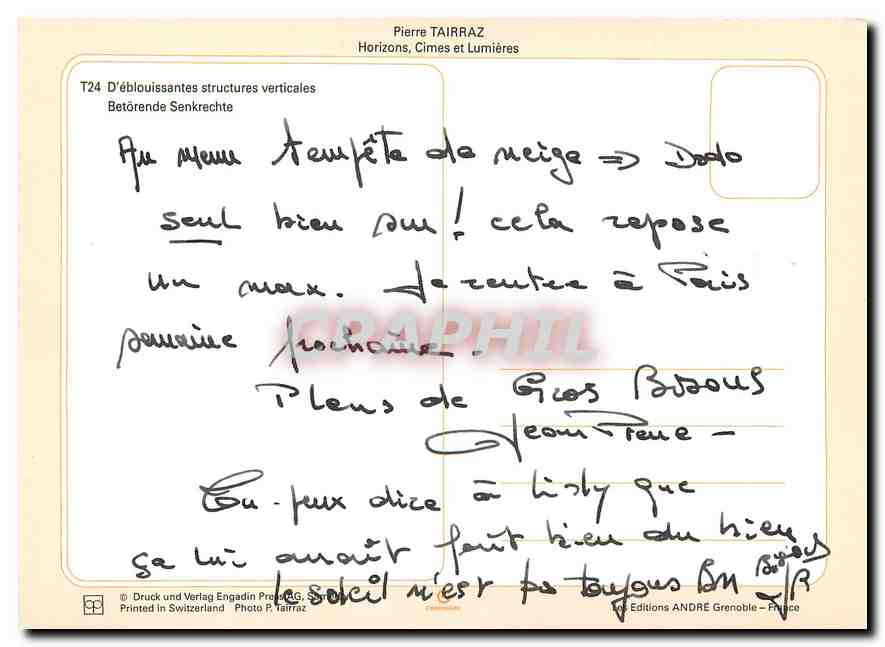 Pierre TAIRRAZ
Horizons, Cimes et Lumières
T24 D'éblouissantes structures verticales
Betörende Senkrechte
Au menu tempête de neige => Dodo
seul bien sur ! cela repose
un max. Je rentre à Paris
semaine prochaine.
Pleins de Gros Bisous
Jean Pierre -
Tu peux dire à que
ça lui aurait fait bien du bien
le soleil n'est pas toujours
CRAPHIL
© Druck und Verlag Engadin Press AG,
Printed in Switzerland Photo P. Tairraz
Les Editions ANDRÉ Grenoble – France